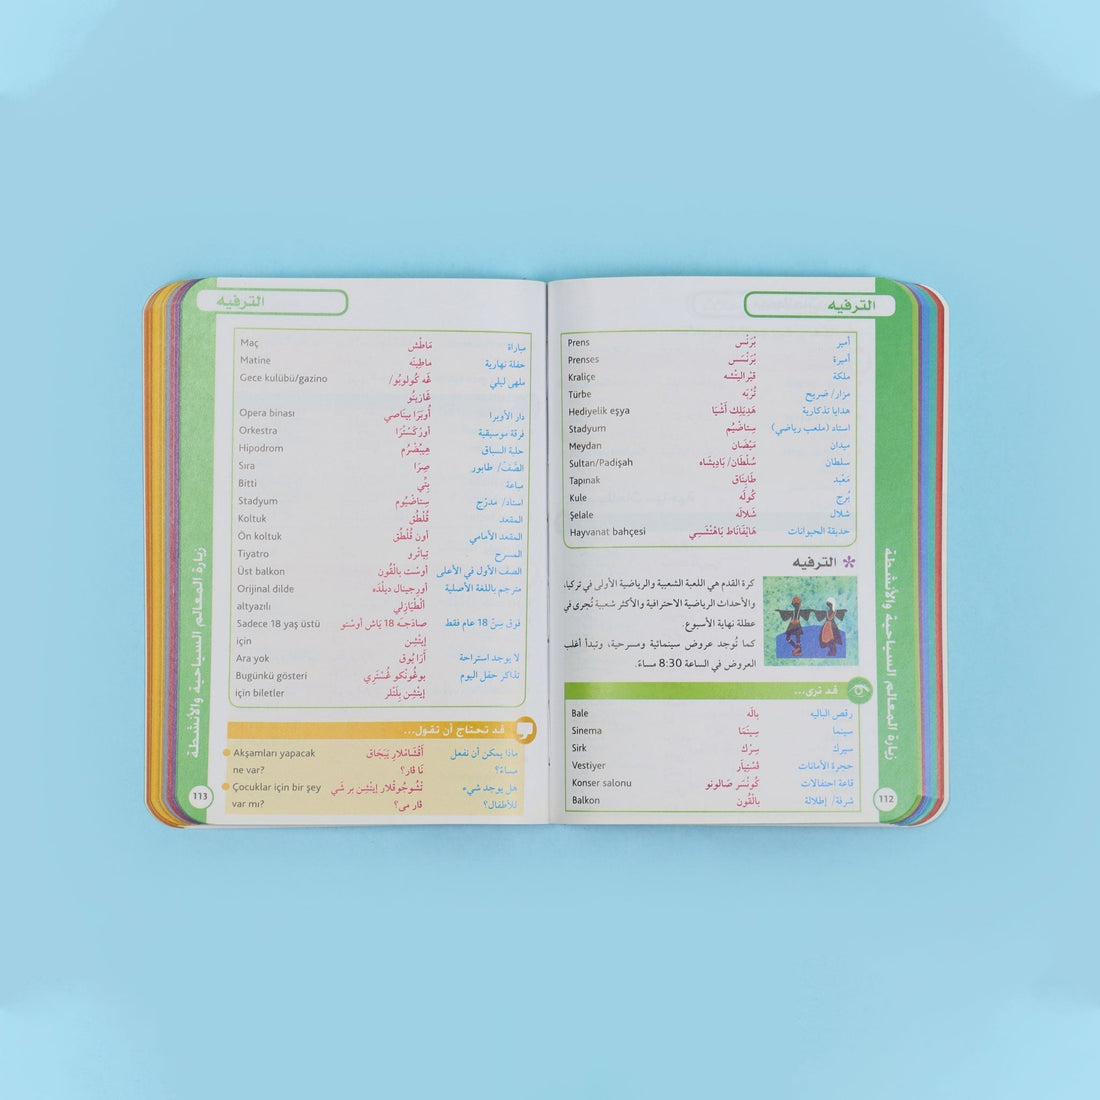 الترفيه
أمير بْرَنْس Prens
أميرة بْرَنْسَس Prenses
ملكة قْرَالِيتْشَه Kraliçe
مزار/ ضريح تُرْبَه Türbe
هدايا تذكارية هَدِيَلِك أَشْيَا Hediyelik eşya
استاد (ملعب رياضي) سِتاضْيُم Stadyum
ميدان مَيْضَان Meydan
سلطان سُلْطَان/ بَادِيشَاه Sultan/Padişah
مَعْبد طَابِنَاق Tapınak
بُرج كُولَه Kule
شلال شَلالَه Şelale
حديقة الحيوانات Hayvanat bahçesi
* الترفيه
كرة القدم هي اللعبة الشعبية والرياضية الأولى في تركيا،
والأحداث الرياضية الاحترافية والأكثر شعبية تُجرى في
عطلة نهاية الأسبوع.
كما تُوجد عروض سينمائية ومسرحية، وتبدأ أغلب
العروض في الساعة 8:30 مساءً.
قد ترى...
رقص الباليه بالَه Bale
سينما سِينَمَا Sinema
سيرك سِرْك Sirk
حجرة الأمانات فَسْتِيَار Vestiyer
قاعة احتفالات كُونْسَر صَالونو Konser salonu
شرفة/ إطلالة بالْقُون Balkon
زيارة المعالم السياحية والأنشطة
112
الترفيه
مباراة مَاطْش Maç
حفلة نهارية ماطِينَه Matine
ملهى ليلي غَه كُولوبُو/ Gece kulübü/gazino
غَازِينُو
دار الأوبرا أُوبَرَا بيناصِي Opera binası
فرقة موسيقية أورْكَسْتْرَا Orkestra
حلبة السباق هِيبُضْرُم Hipodrom
الصَّفّ/ طابور صِرَا Sıra
مباعة بِتِّي Bitti
استاد/ مدرّج سِتاضْيُوم Stadyum
المقعد قُلْطُق Koltuk
المقعد الأمامي أون قُلْطُق Ön koltuk
المسرح تِياتْرو Tiyatro
الصف الأول في الأعلى أوسْت بالْقُون Üst balkon
مترجم باللغة الأصلية أورجينال ديلْدَه Orijinal dilde
أَلْطْيَازلي altyazılı
فوق سِنّ 18 عام فقط صادَجَه 18 يَاش أوسْتو Sadece 18 yaş üstü
إيتشِن için
لا يوجد استراحة أرَا يُوق Ara yok
تذاكر حفل اليوم بوغُونْكو غُسْتَري Bugünkü gösteri
إيتْشِن بِلَتْلَر için biletler
قد تحتاج أن تقول...
ماذا يمكن أن نفعل أَقْشَامْلار يَبَجَاق Akşamları yapacak
مساءً؟ نَا فَار؟ ne var?
هل يوجد شيء تْشوجُوقْلار إيتْشِن بِر شَي Çocuklar için bir şey
للأطفال؟ فَار مي؟ var mı?
زيارة المعالم السياحية والأنشطة
113